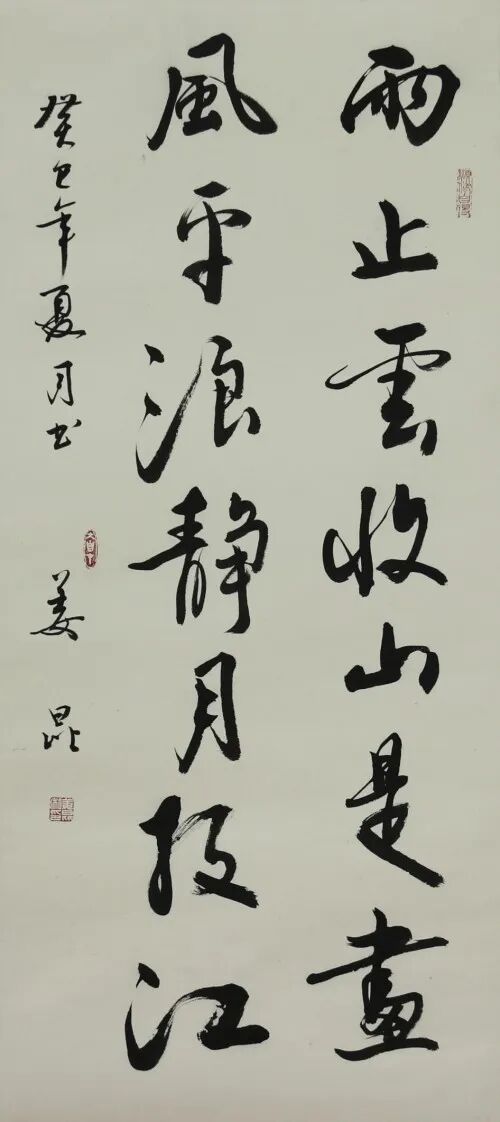 雨止雲收山是畫
風平浪靜月投江
癸巳年夏月书
姜昆